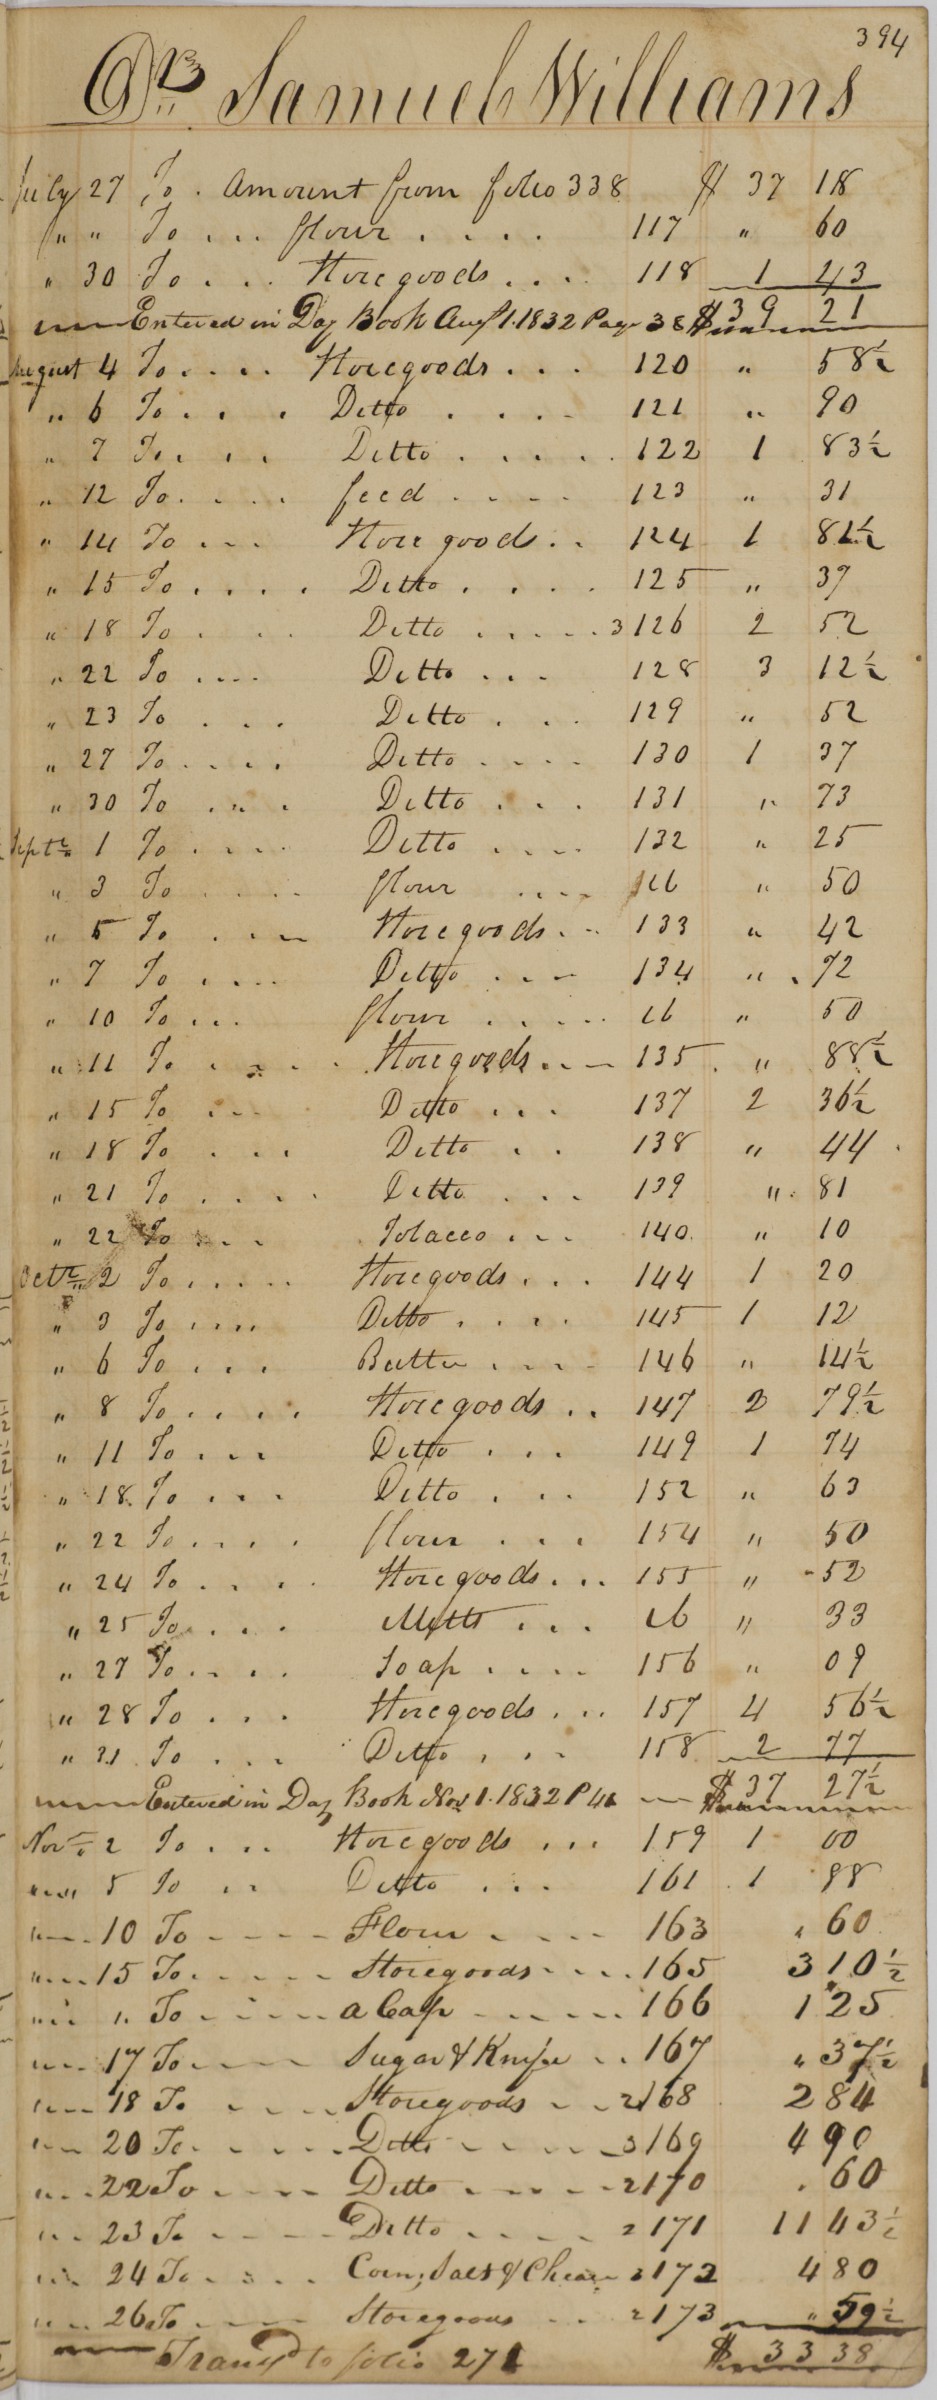 394
Dr. Samuel Williams
July 27 To . Amount from folio 338 $ 37 18
" " To ... flour .... 117 " 60
" 30 To ... Storegoods .... 118 1 43
Entered in Day Book Augt 1. 1832 Page 38 $39 21
August 4 To .... Storegoods ... 120 " 58½
" 6 To ... Ditto .... 121 " 90
" 7 To ... Ditto ..... 122 1 83½
" 12 To .... feed .... 123 " 31
" 14 To ... Storegoods .. 124 1 81½
" 15 To .... Ditto .... 125 " 37
" 18 To ... Ditto ..... 3 126 2 52
" 22 To .... Ditto ... 128 3 12½
" 23 To ... Ditto ... 129 " 52
" 27 To .... Ditto .... 130 1 37
" 30 To ... Ditto ... 131 " 73
Septr 1 To .... Ditto .... 132 " 25
" 3 To .... flour .... ib " 50
" 5 To ... Storegoods .. 133 " 42
" 7 To .... Ditto ... 134 " 72
" 10 To ... flour ..... ib " 50
" 11 To .... Storegoods ... 135 " 88½
" 15 To ... Ditto ... 137 2 36½
" 18 To ... Ditto .. 138 " 44
" 21 To .... Ditto ... 139 " 81
" 22 To ... Tobacco ... 140 " 10
Octr 2 To ..... Storegoods ... 144 1 20
" 3 To .... Ditto .... 145 1 12
" 6 To ... Butter .... 146 " 14½
" 8 To .... Storegoods .. 147 2 79½
" 11 To ... Ditto ... 149 1 74
" 18 To ... Ditto ... 152 " 63
" 22 To .... flour ... 154 " 50
" 24 To .... Storegoods ... 155 " 52
" 25 To .... Mitts ... ib " 33
" 27 To .... Soap .... 156 " 09
" 28 To ... Storegoods ... 157 4 56½
" 31 To ... Ditto ... 158 2 77
Entered in Day Book Nov 1. 1832 P 41 $37 27½
Novr 2 To ... Storegoods ... 159 1 00
" 5 To .. Ditto ... 161 1 88
" 10 To .... Flour .... 163 " 60
" 15 To ..... Storegoods .... 165 3 10½
" " To .... a Cap ..... 166 1 25
" 17 To .... Sugar & Knife .. 167 " 37½
" 18 To .... Storegoods .. 2 168 2 84
" 20 To .... Ditto .... 3 169 4 90
" 22 To .... Ditto .... 2 170 . 60
" 23 To .... Ditto .... 2 171 11 43½
" 24 To .... Corn, Salt & Cheese 2 172 4 80
" 26 To .... Storegoods .. 2 173 " 59½
Transd to folio 271 $ 33 38